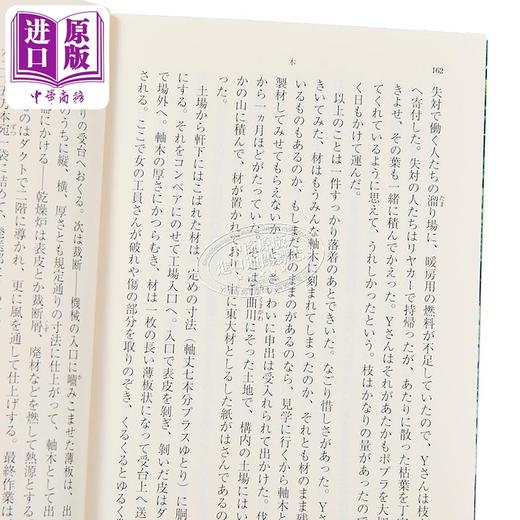 进口
原版
中華商務
木
162
失対で働く人たちの溜り場に、暖房用の燃料が不足していたので、Yさんは枝
へ寄付した。失対の人たちはリヤカーで持帰ったが、あたりに散った枯葉を丁
きよせ、その葉も一緒に積んでかえった。Yさんはそれがあたかもポプラを大切
てくれているように思えて、うれしかったという。枝はかなりの量があったので
く日もかけて運んだ。
以上のことは一件すっかり落着のあとできいた。なごり惜しさがあった。
きいてみた、材はもうみんな軸木に刻まれてしまったのか、それとも材のまま残
いるものもあるのか、もしまだ材のままのがあるのなら、見学に行くから軸木と
製材してみせてもらえないか。さいわいに申出は受入れられて出かけた。伐
から一ヵ月ほどがたっていた。は曲川にそった土地で、構内の土場にはい
かの山に積んで、材が置かれており、に東大材としるした紙がはさんであ
った。
土場から軒下にはこばれた材は、定めの寸法（軸丈七本分プラスゆとり）に胴
にする。それをコンベアにのせて工場入口へ。入口で表皮を剝ぎ、剝いだ皮はダ
で場外へ。軸木の厚さにかつらむき、材は一枚の長い薄板状になって受台上へ送
される。ここで女の工員さんが破れや傷の部分を取りのぞき、くるくるとゆるく巻
りの受台へおくる。次は裁断――機械の入口に嚙みこませた薄板は、出
のうちに縦、横、厚さとも規定通りの寸法に仕上がって、軸木として出
にかける――乾燥炉は表皮とか裁断屑、廃材などを燃して熱源とする
はダクトで二階に導かれ、更に風を通して仕上げする。最終作業は
五万本宛一袋に詰めて、